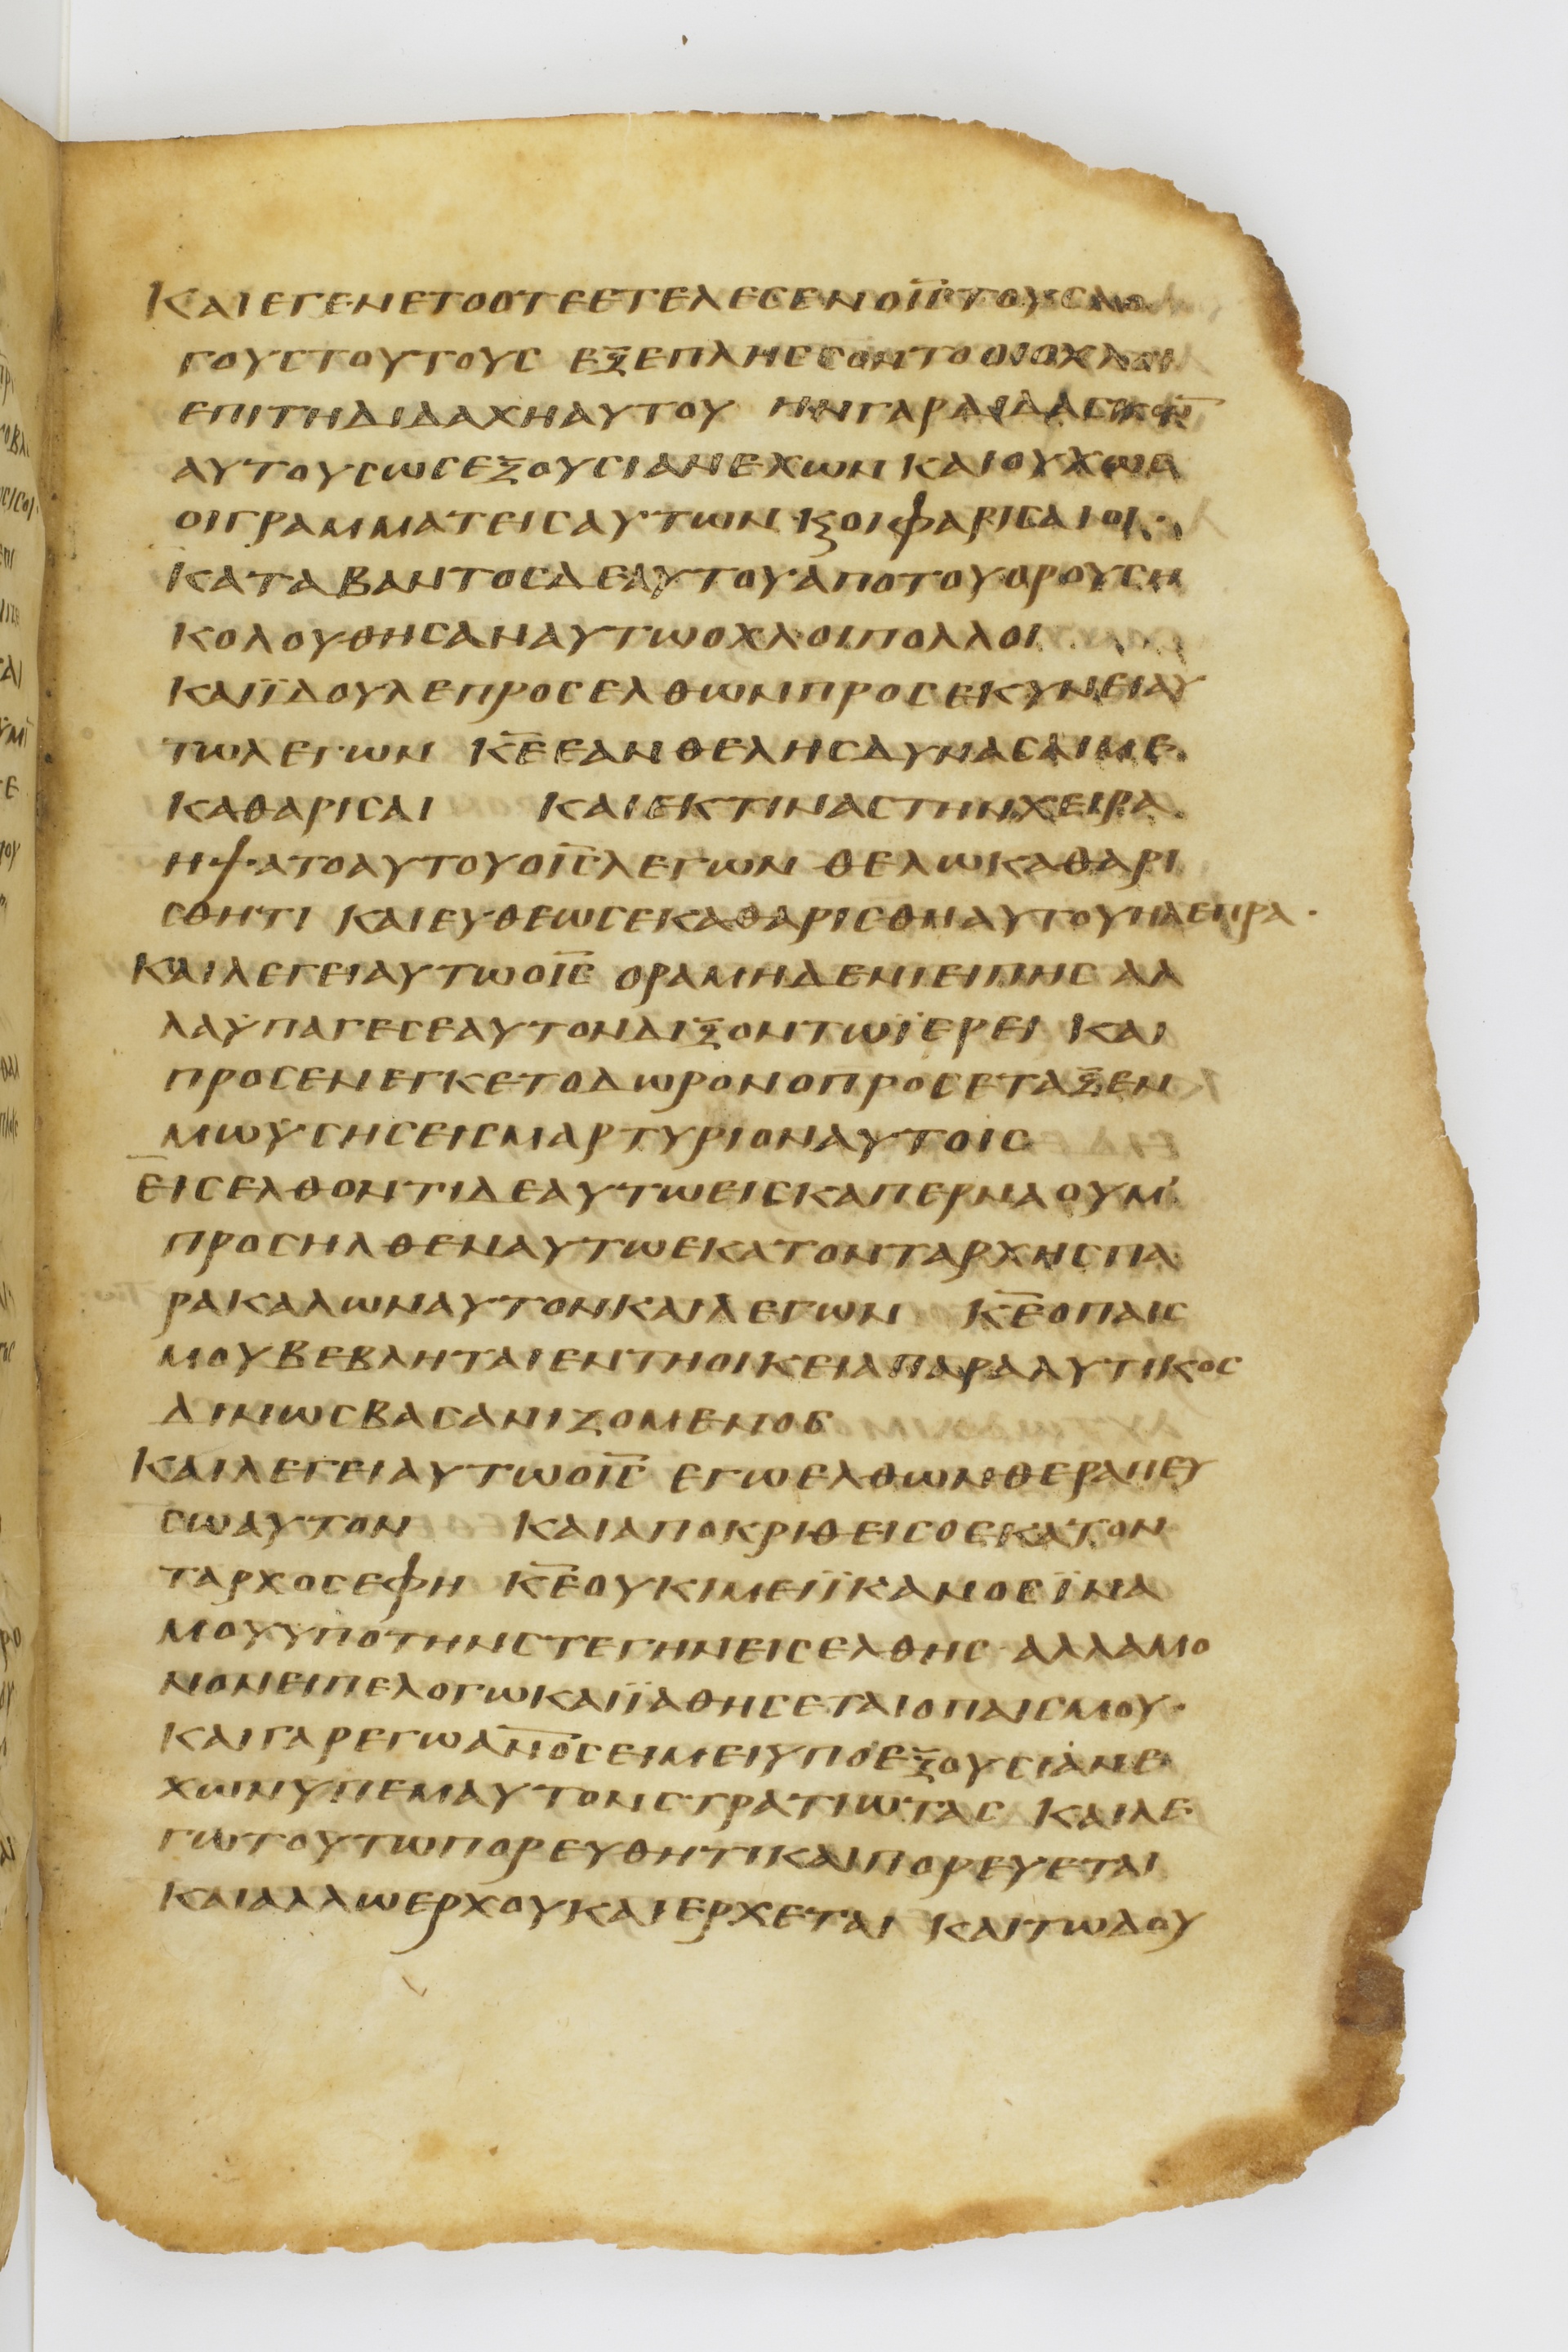 ΚΑΙΕΓΕΝΕΤΟΟΤΕΕΤΕΛΕCΕΝΟΙ̅C̅ΤΟΥCΛΟ
ΓΟΥCΤΟΥΤΟΥC ΕΞΕΠΛΗCCΟΝΤΟΟΙΟΧΛΟΙ
ΕΠΙΤΗΔΙΔΑΧΗΑΥΤΟΥ ΗΝΓΑΡΔΙΔΑCΚΩ̅
ΑΥΤΟΥCΩCΕΞΟΥCΙΑΝΕΧΩΝ ΚΑΙΟΥΧΩC
ΟΙΓΡΑΜΜΑΤΕΙCΑΥΤΩΝ ϗΟΙΦΑΡΙCΑΙΟΙ·
ΚΑΤΑΒΑΝΤΟCΔΕΑΥΤΟΥΑΠΟΤΟΥΟΡΟΥCΗ
ΚΟΛΟΥΘΗCΑΝΑΥΤΩΟΧΛΟΙΠΟΛΛΟΙ
ΚΑΙΪΔΟΥΛΕΠΡΟCΕΛΘΩΝΠΡΟCΕΚΥΝΕΙΑΥ
ΤΩΛΕΓΩΝ Κ̅Ε̅ΕΑΝΘΕΛΗCΔΥΝΑCΑΙΜΕ
ΚΑΘΑΡΙCΑΙ ΚΑΙΕΚΤΙΝΑCΤΗΝΧΕΙΡΑ
ΗΨΑΤΟΑΥΤΟΥΟΙ̅C̅ΛΕΓΩΝ ΘΕΛΩΚΑΘΑΡΙ
CΘΗΤΙ ΚΑΙΕΥΘΕΩCΕΚΑΘΑΡΙCΘΗΑΥΤΟΥΗΛΕΠΡΑ·
ΚΑΙΛΕΓΕΙΑΥΤΩΟΙ̅C̅ ΟΡΑΜΗΔΕΝΙΕΙΠΗCΑΛ
ΛΑΥΠΑΓΕCΕΑΥΤΟΝΔΙΞΟΝΤΩΪΕΡΕΙ ΚΑΙ
ΠΡΟCΕΝΕΓΚΕΤΟΔΩΡΟΝΟΠΡΟCΕΤΑΞΕΝ
ΜΩΥCΗCΕΙCΜΑΡΤΥΡΙΟΝΑΥΤΟΙC
ΕΙCΕΛΘΟΝΤΙΔΕΑΥΤΩΕΙCΚΑΠΕΡΝΑΟΥΜ
ΠΡΟCΗΛΘΕΝΑΥΤΩΕΚΑΤΟΝΤΑΡΧΗCΠΑ
ΡΑΚΑΛΩΝΑΥΤΟΝΚΑΙΛΕΓΩΝ Κ̅Ε̅ΟΠΑΙC
ΜΟΥΒΕΒΛΗΤΑΙΕΝΤΗΟΙΚΕΙΑΠΑΡΑΛΥΤΙΚΟC
ΔΙΝΩCΒΑCΑΝΙΖΟΜΕΝΟC
ΚΑΙΛΕΓΕΙΑΥΤΩΟΙ̅C̅ ΕΓΩΕΛΘΩΝΘΕΡΑΠΕΥ
CΩΑΥΤΟΝ ΚΑΙΑΠΟΚΡΙΘΕΙCΟΕΚΑΤΟΝ
ΤΑΡΧΟCΕΦΗ Κ̅Ε̅ΟΥΚΙΜΕΙΪΚΑΝΟCΪΝΑ
ΜΟΥΥΠΟΤΗΝCΤΕΓΗΝΕΙCΕΛΘΗC ΑΛΛΑΜΟ
ΝΟΝΕΙΠΕΛΟΓΩΚΑΙΪΑΘΗCΕΤΑΙΟΠΑΙCΜΟΥ·
ΚΑΙΓΑΡΕΓΩΑ̅Ν̅Ο̅C̅ΕΙΜΕΙΥΠΟΕΞΟΥCΙΑΝΕ
ΧΩΝΥΠΕΜΑΥΤΟΝCΤΡΑΤΙΩΤΑC ΚΑΙΛΕ
ΓΩΤΟΥΤΩΠΟΡΕΥΘΗΤΙΚΑΙΠΟΡΕΥΕΤΑΙ
ΚΑΙΑΛΛΩΕΡΧΟΥΚΑΙΕΡΧΕΤΑΙ ΚΑΙΤΩΔΟΥ